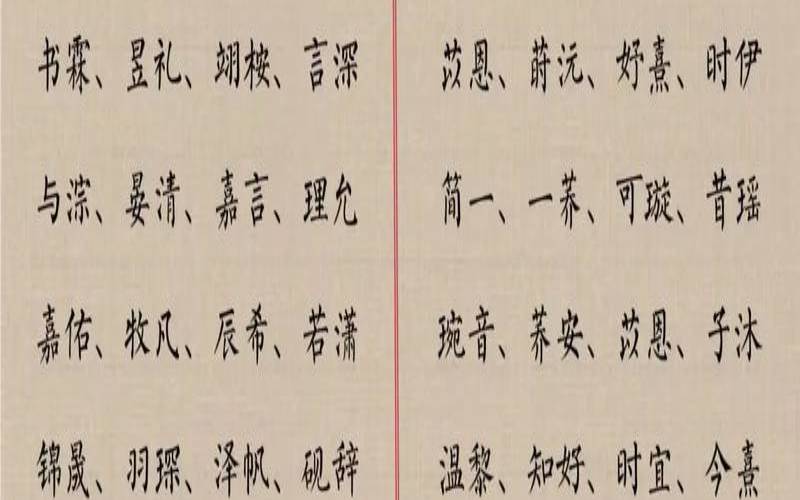 书霖、昱礼、翊桉、言深
与淙、晏清、嘉言、理允
嘉佑、牧凡、辰希、若潇
锦晟、羽琛、泽帆、砚辞
苡恩、莳沅、妤熹、时伊
简一、一荞、可璇、昔瑶
琬音、荞安、苡恩、子沐
温黎、知好、时宜、今熹